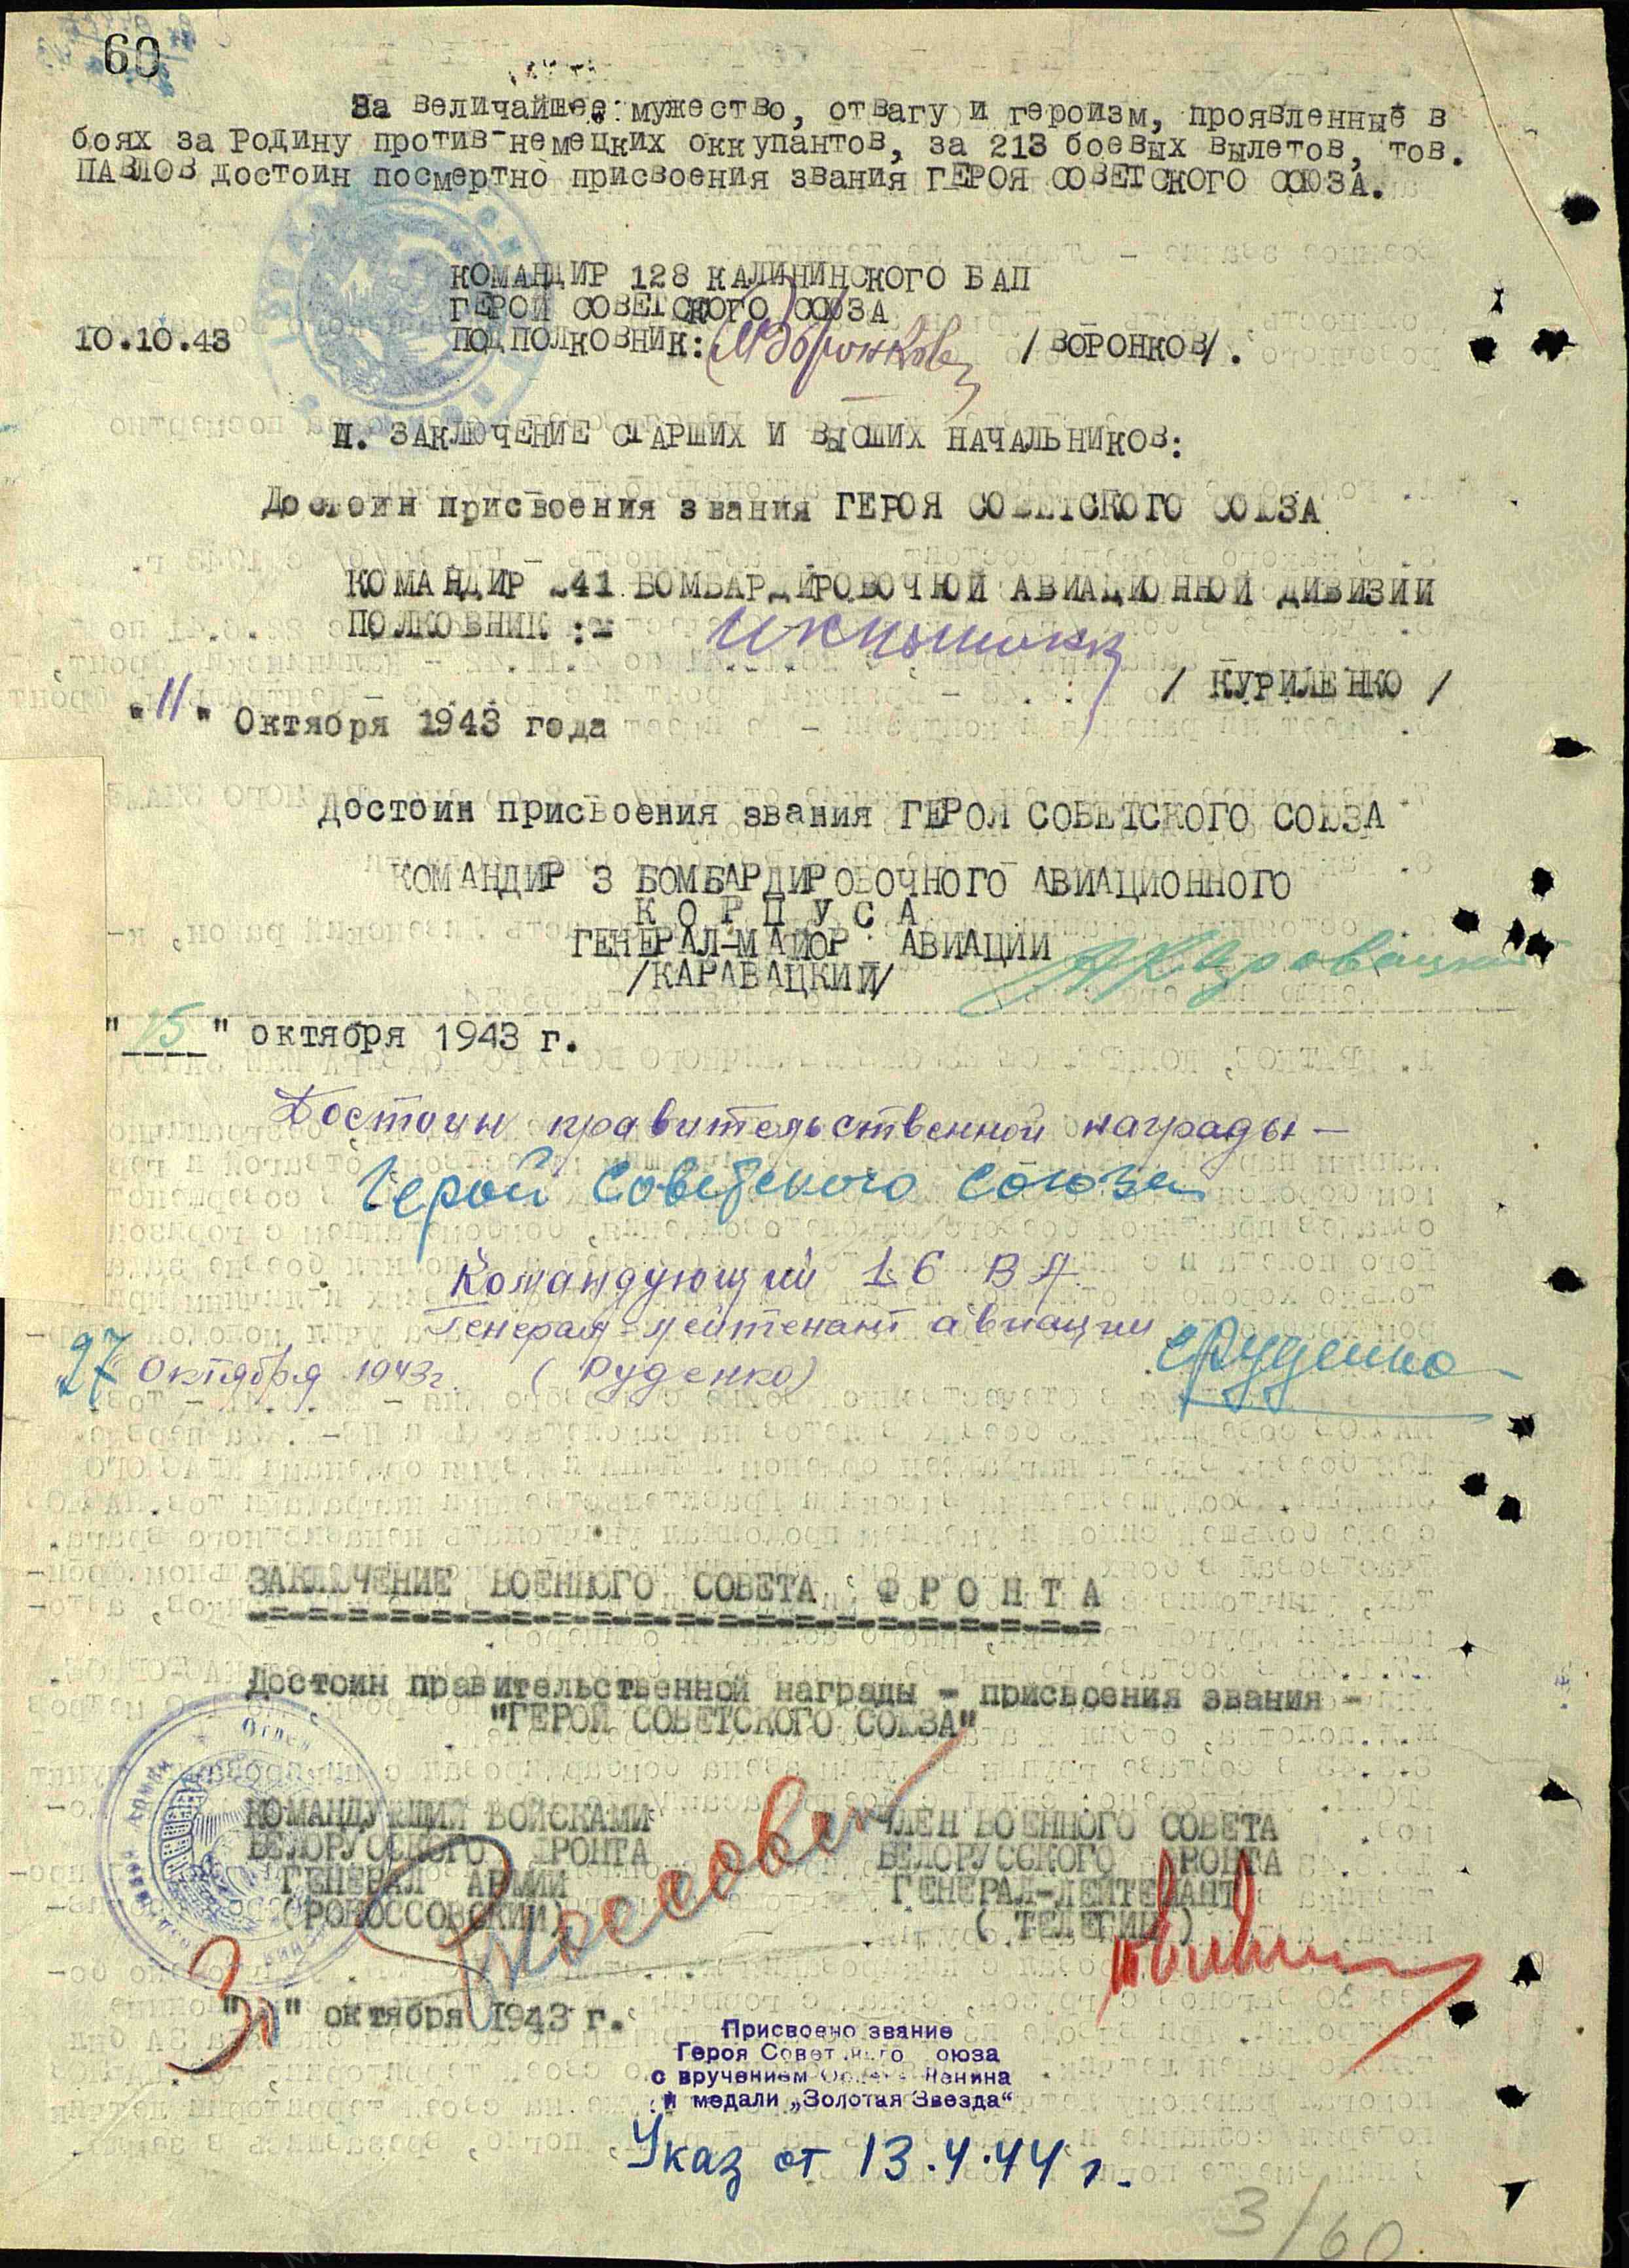 60
За величайшее мужество, отвагу и героизм, проявленные в
боях за Родину против немецких оккупантов, за 213 боевых вылетов, тов.
ПАВЛОВ достоин посмертно присвоения звания ГЕРОЯ СОВЕТСКОГО СОЮЗА.
КОМАНДИР 128 КАЛИНИНСКОГО БАП
ГЕРОЙ СОВЕТСКОГО СОЮЗА
10.10.43 ПОДПОЛКОВНИК: /ВОРОНКОВ/.
II. ЗАКЛЮЧЕНИЕ СТАРШИХ И ВЫСШИХ НАЧАЛЬНИКОВ:
Достоин присвоения звания ГЕРОЯ СОВЕТСКОГО СОЮЗА
КОМАНДИР 241 БОМБАРДИРОВОЧНОЙ АВИАЦИОННОЙ ДИВИЗИИ
ПОЛКОВНИК :-
/ КУРИЛЕНКО /
"11" Октября 1943 года
Достоин присвоения звания ГЕРОЯ СОВЕТСКОГО СОЮЗА
КОМАНДИР 3 БОМБАРДИРОВОЧНОГО АВИАЦИОННОГО
К О Р П У С А
ГЕНЕРАЛ-МАЙОР АВИАЦИИ
/КАРАВАЦКИЙ/
"15" октября 1943 г.
Достоин правительственной награды —
Герой Советского Союза
Командующий 16 ВА
Генерал-лейтенант авиации
27 Октября 1943г. (Руденко) Руденко
ЗАКЛЮЧЕНИЕ ВОЕННОГО СОВЕТА Ф Р О Н Т А
Достоин правительственной награды - присвоения звания -
"ГЕРОЙ СОВЕТСКОГО СОЮЗА"
КОМАНДУЮЩИЙ ВОЙСКАМИ ЧЛЕН ВОЕННОГО СОВЕТА
БЕЛОРУССКОГО ФРОНТА БЕЛОРУССКОГО ФРОНТА
ГЕНЕРАЛ АРМИИ ГЕНЕРАЛ-ЛЕЙТЕНАНТ
(РОКОССОВСКИЙ) ( ТЕЛЕГИН )
"31" октября 1943 г.
Присвоено звание
Героя Советского Союза
с вручением Ордена Ленина
и медали „Золотая Звезда“
Указ от 13.4.44 г.
3/60